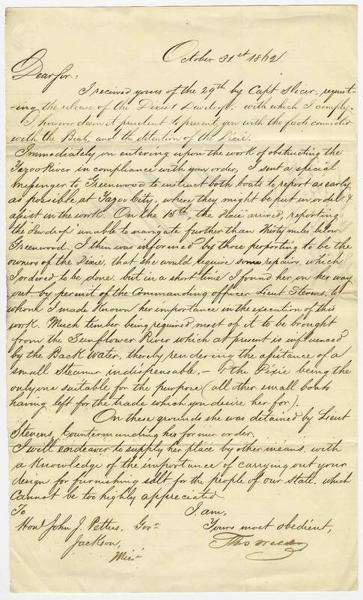 October 31st 1862
Dear Sir:
I received yours of the 29th by Capt Slicer, request-
ing the release of the Dixie & Dewdrop, with which I comply.
I however deem it prudent to present you with the facts connected
with the Boats, and the detention of the Dixie.
Immediately on entering upon the work of obstructing the
Yazoo River in compliance with your order, I sent a special
Messenger to Greenwood to instruct both boats to report as early
as possible at Yazoo City, where they might be put in order &
assist in the work. On the 16th, the Dixie arrived, reporting
the Dewdrop unable to navigate further than thirty miles below
Greenwood. I then was informed by those purporting to be the
owners of the Dixie, that she would require some repairs, which
I ordered to be done, but in a short time I found her on her way
out by permit of the Commanding officer Lieut Stevens, to
whom I made Known her importance in the execution of this
work. Much timber being required most of it to be brought
from the Sunflower River which at present is influenced
by the Back Water, thereby rendering the assistance of a
small Steamer indispensable, — & the Dixie being the
only one suitable for the purpose (all other small boats
having left for the trade which you desire her for).
On these grounds she was detained by Lieut
Stevens, Countermanding her former order.
I will endeavor to supply her place by other means, with
a Knowledge of the importance of carrying out your
design for furnishing salt for the people of our state, which
cannot be too highly appreciated
To I am,
Hon John J. Pettus. Gov. Yours most obedient,
Jackson, Thos
Missi